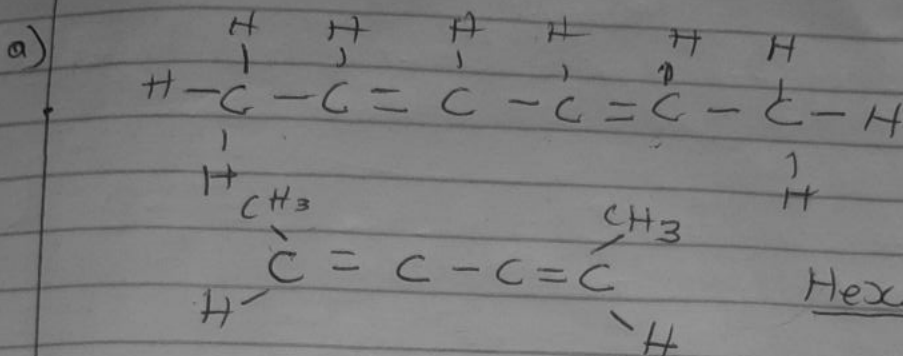 a)
H H H H H H
H - C - C = C - C = C - C - H
H H
CH3 CH3
C = C - C = C
H H
Hex